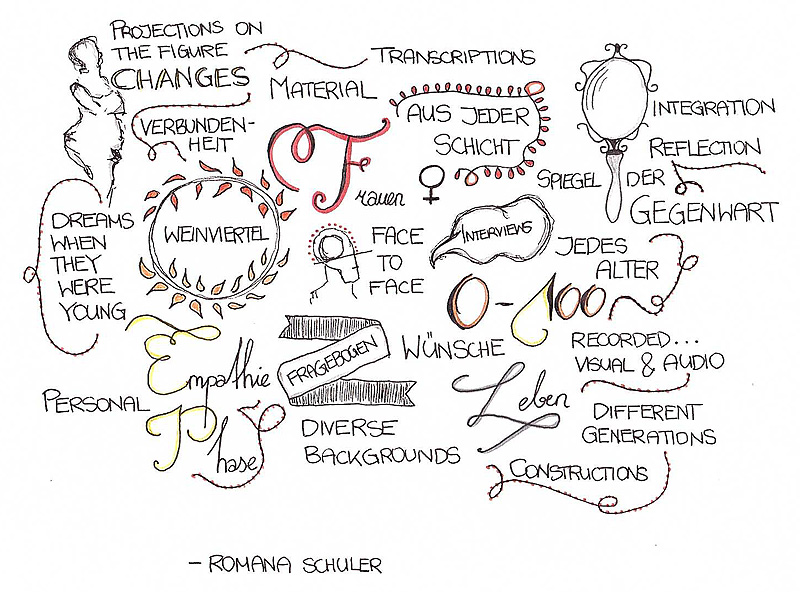 PROJECTIONS ON
THE FIGURE
CHANGES
TRANSCRIPTIONS
MATERIAL
VERBUNDEN-
HEIT
AUS JEDER
SCHICHT
Frauen
INTEGRATION
REFLECTION
SPIEGEL DER
GEGENWART
DREAMS
WHEN
THEY
WERE
YOUNG
WEINVIERTEL
FACE
TO
FACE
INTERVIEWS
JEDES
ALTER
0-100
Empathie
Phase
FRAGEBOGEN
WÜNSCHE
RECORDED...
VISUAL & AUDIO
PERSONAL
DIVERSE
BACKGROUNDS
Leben
DIFFERENT
GENERATIONS
CONSTRUCTIONS
- ROMANA SCHULER